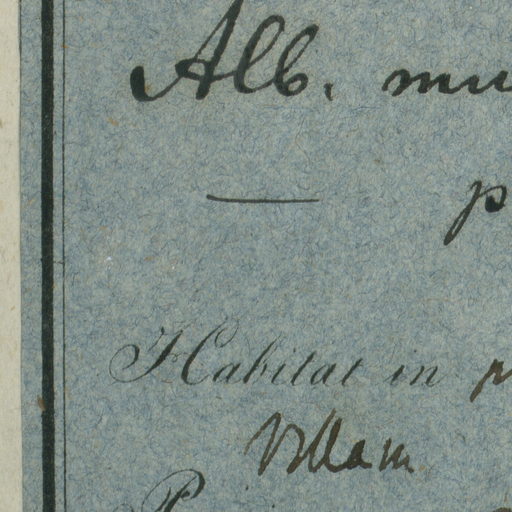 Alb. mu
— p
Habitat in
Villam
P